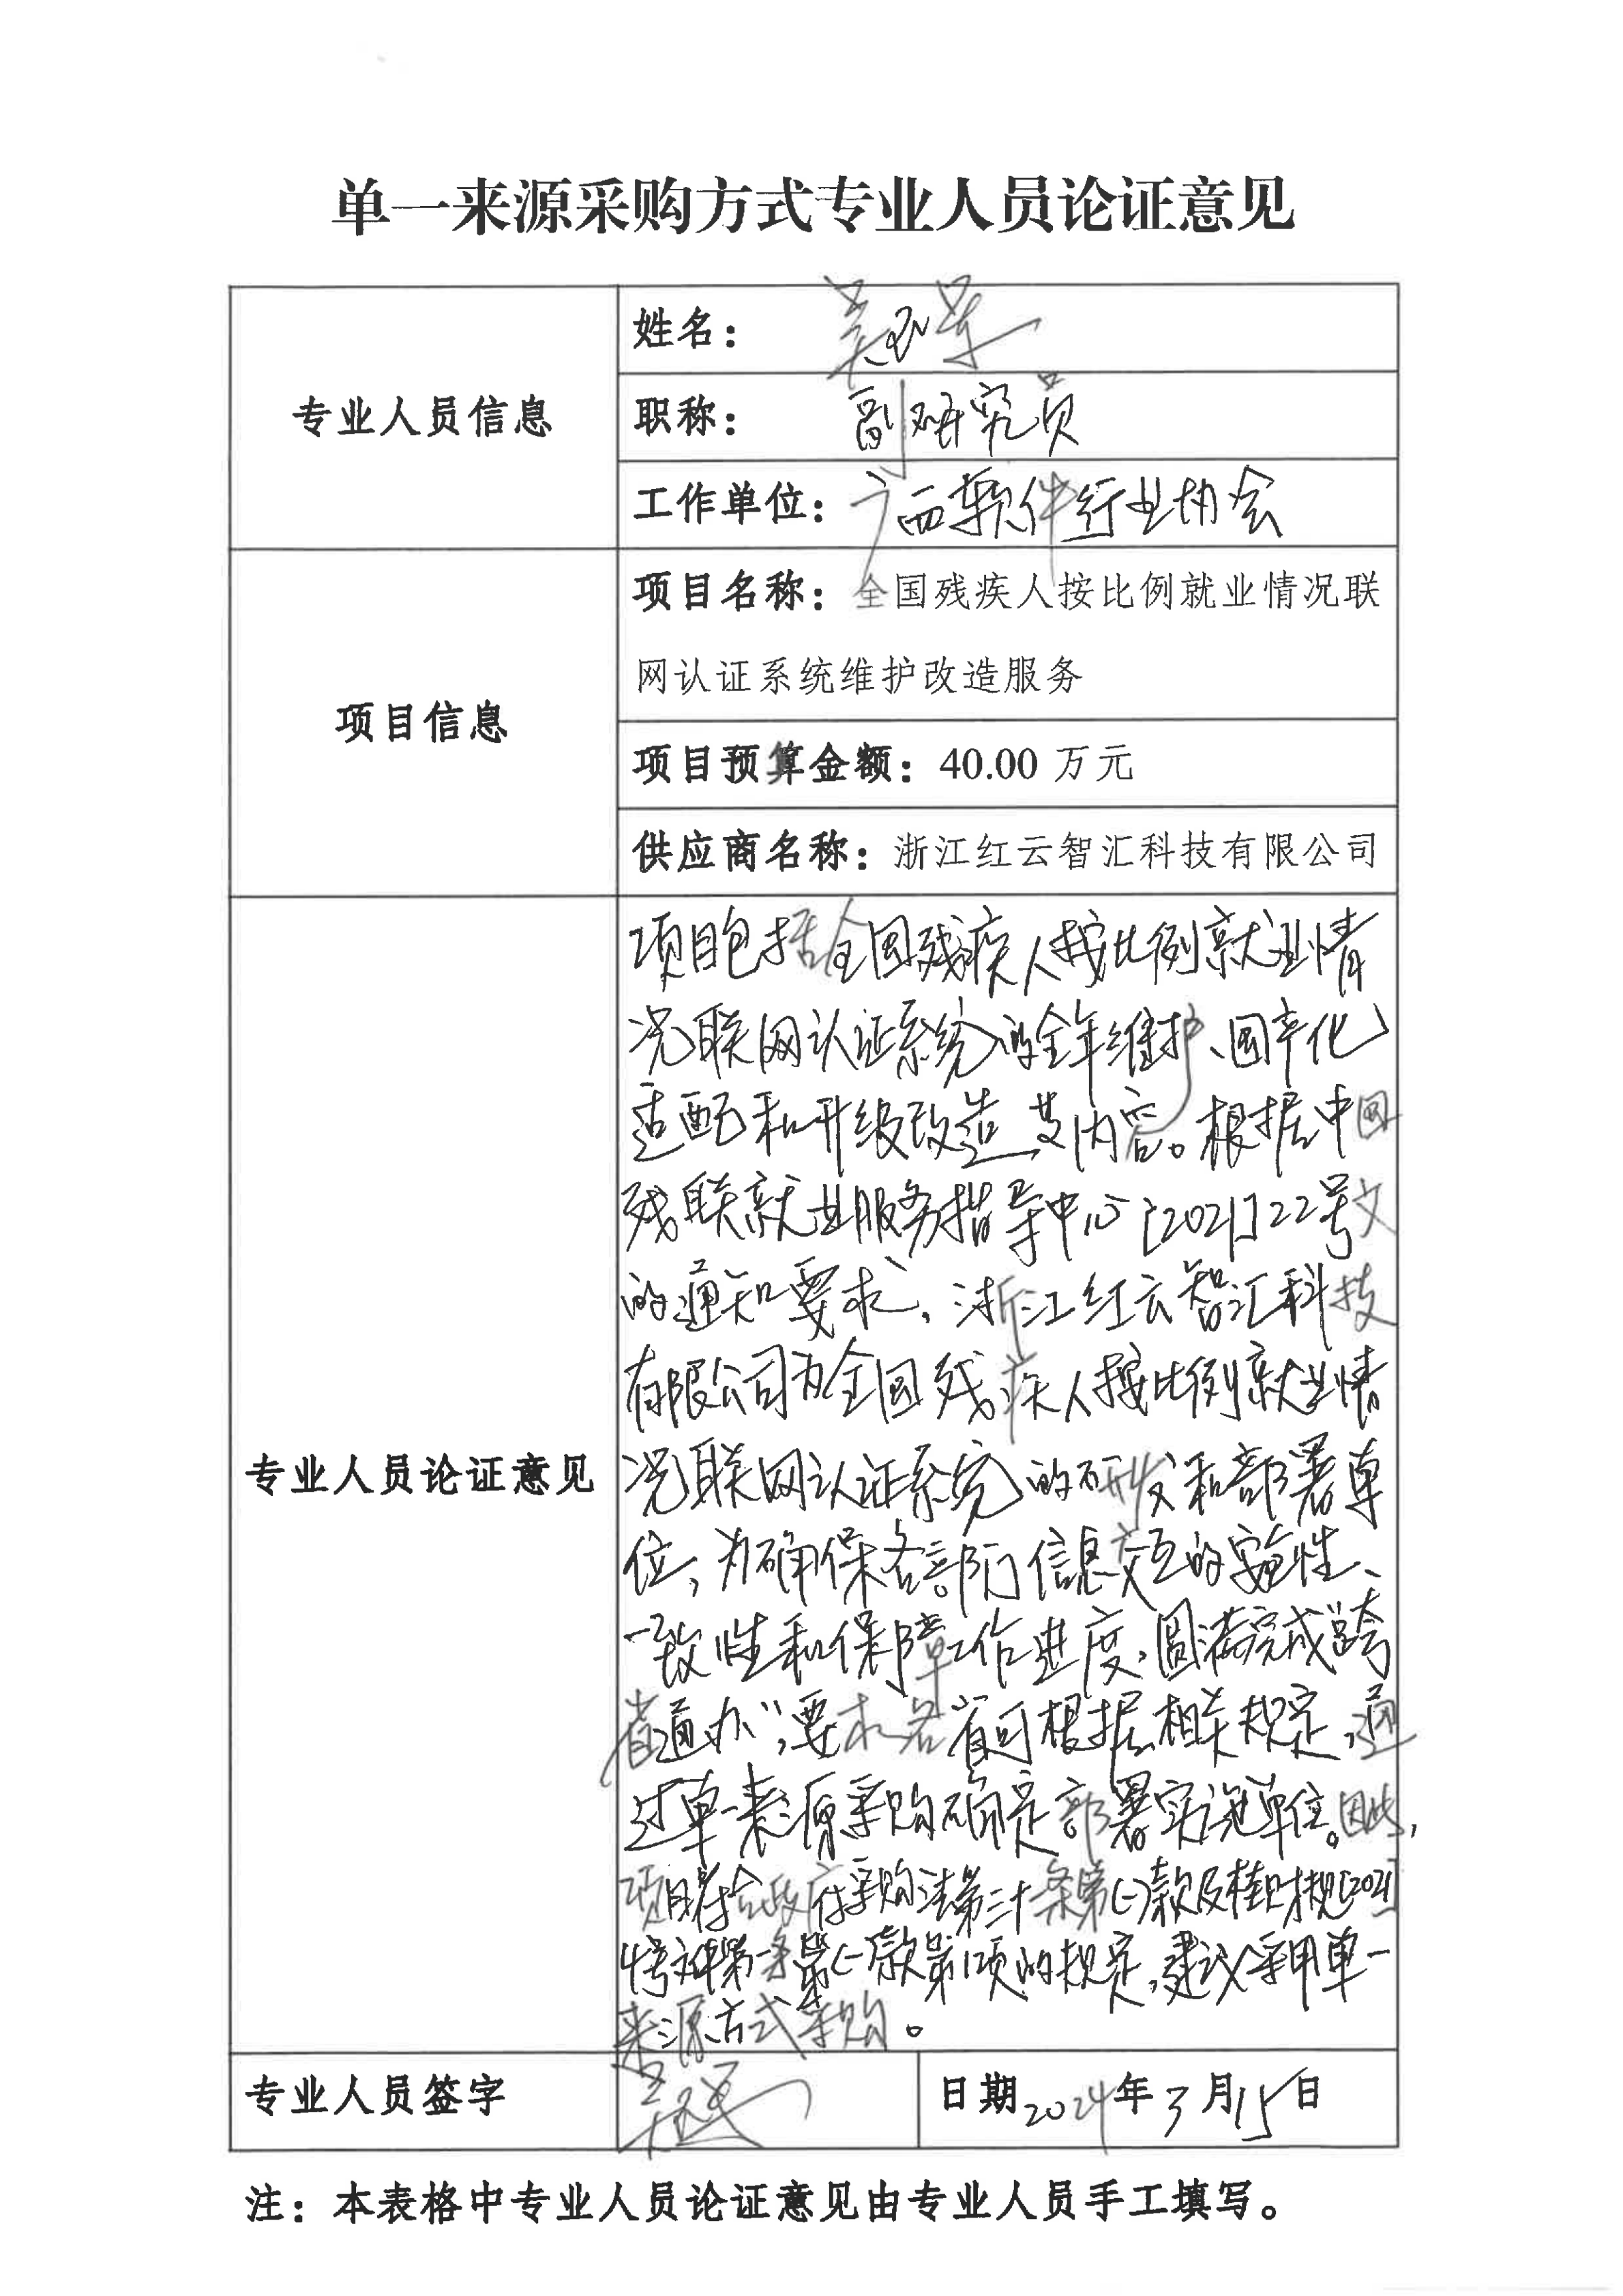 单一来源采购方式专业人员论证意见
专业人员信息
姓名：
职称： 副研究员
工作单位：广西软件行业协会
项目信息
项目名称：全国残疾人按比例就业情况联
网认证系统维护改造服务
项目预算金额：40.00 万元
供应商名称：浙江红云智汇科技有限公司
专业人员论证意见
项目包括全国残疾人按比例就业情
况联网认证系统的全年维护、国产化
适配和升级改造等内容。根据中国
残联就业服务指导中心[2021]22号文
的通知要求，浙江红云智汇科技
有限公司为全国残疾人按比例就业情
况联网认证系统的研发和部署单
位，为确保各部门信息交互的安全性、
一致性和保障工作进度，圆满完成“跨
省通办”，要求各省可根据相关规定，通
过单一来源采购确定部署实施单位。因此，
项目符合政府采购法第三十一条第(一)款及桂财规[2021]
4号文件第一条第(一)款第1项的规定，建议采用单一
来源方式采购。
专业人员签字
日期2024年3月15日
注：本表格中专业人员论证意见由专业人员手工填写。